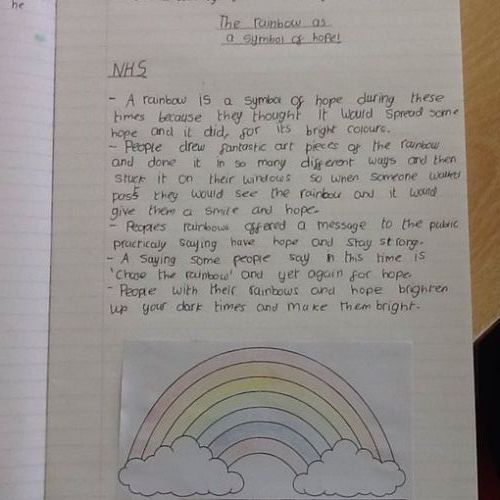 he
The rainbow as
a symbol of hope!
NHS
- A rainbow is a symbol of hope during these
times because they thought it would spread some
hope and it did, for its bright colours.
- People drew fantastic art pieces of the rainbow
and done it in so many different ways and then
stuck it on their windows so when someone walked
pass they would see the rainbow and it would
give them a smile and hope.
- Peoples rainbows offered a message to the public
practicaly saying have hope and stay strong.
- A saying some people say in this time is
'Chase the rainbow' and yet again for hope.
- People with their rainbows and hope brighten
up your dark times and make them bright.